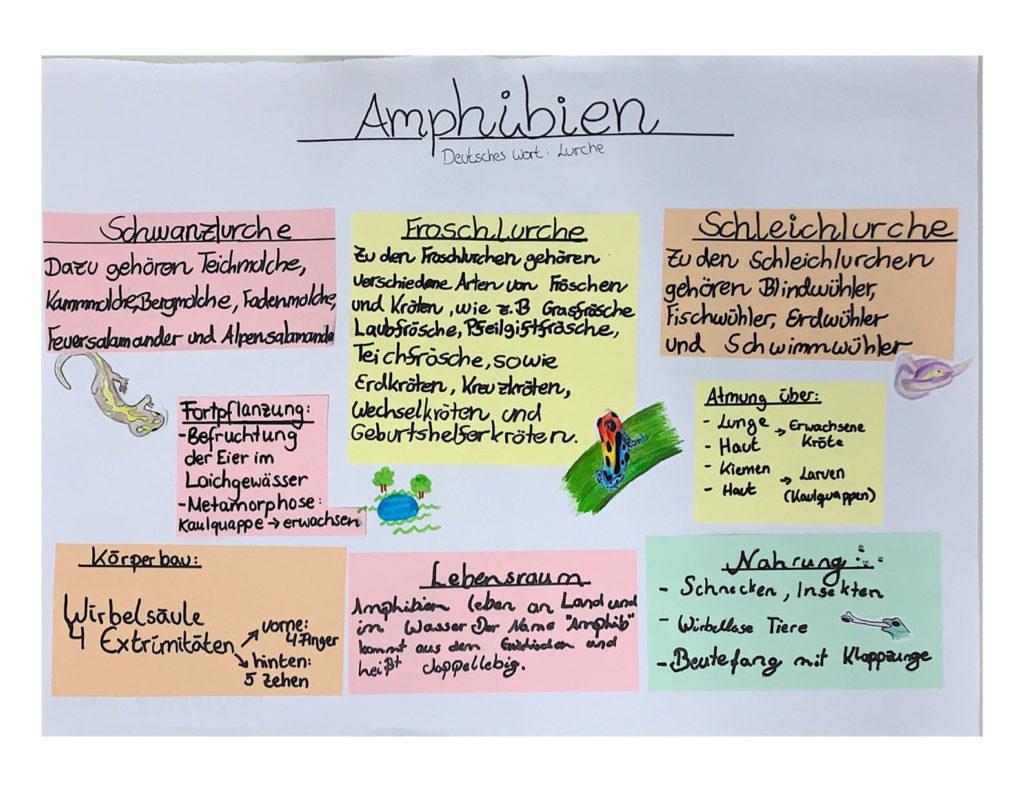 Amphibien
Deutsches Wort: Lurche
Schwanzlurche
Dazu gehören Teichmolche,
Kammmolche, Bergmolche, Fadenmolche,
Feuersalamander und Alpensalamande
Froschlurche
Zu den Froschlurchen gehören
verschiedene Arten von Fröschen
und Kröten, wie z.B Grasfrösche
Laubfrösche, Pfeilgiftfrösche,
Teichfrösche, sowie
Erdkröten, Kreuzkröten,
Wechselkröten und
Geburtshelferkröten.
Schleichlurche
Zu den Schleichlurchen
gehören Blindwühler,
Fischwühler, Erdwühler
und Schwimmwühler
Fortpflanzung:
- Befruchtung
der Eier im
Laichgewässer
- Metamorphose:
Kaulquappe → erwachsen
Atmung über:
- Lunge → Erwachsene
- Haut Kröte
- Kiemen → Larven
- Haut (Kaulquappen)
Körperbau:
Wirbelsäule
4 Extrimitäten
vorne:
4 Finger
hinten:
5 Zehen
Lebensraum
Amphibien leben an Land und
im Wasser Der Name "Amphib"
kommt aus dem und
heißt doppellebig.
Nahrung:
- Schnecken, Insekten
- Wirbellose Tiere
- Beutefang mit Klappzunge